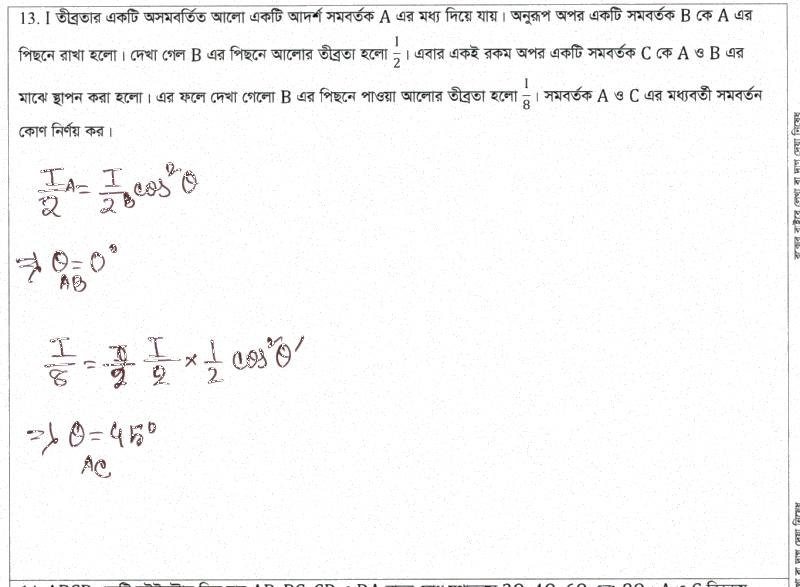 13. I তীব্রতার একটি অসমবর্তিত আলো একটি আদর্শ সমবর্তক A এর মধ্য দিয়ে যায়। অনুরূপ অপর একটি সমবর্তক B কে A এর
পিছনে রাখা হলো। দেখা গেল B এর পিছনে আলোর তীব্রতা হলো 1/2। এবার একই রকম অপর একটি সমবর্তক C কে A ও B এর
মাঝে স্থাপন করা হলো। এর ফলে দেখা গেলো B এর পিছনে পাওয়া আলোর তীব্রতা হলো 1/8। সমবর্তক A ও C এর মধ্যবর্তী সমবর্তন
কোণ নির্ণয় কর।
I/2 A = I/2 B cos²θ
⇒ θ = 0°
AB
I/8 = I/2 × 1/2 cos²θ'
⇒ θ = 45°
AC